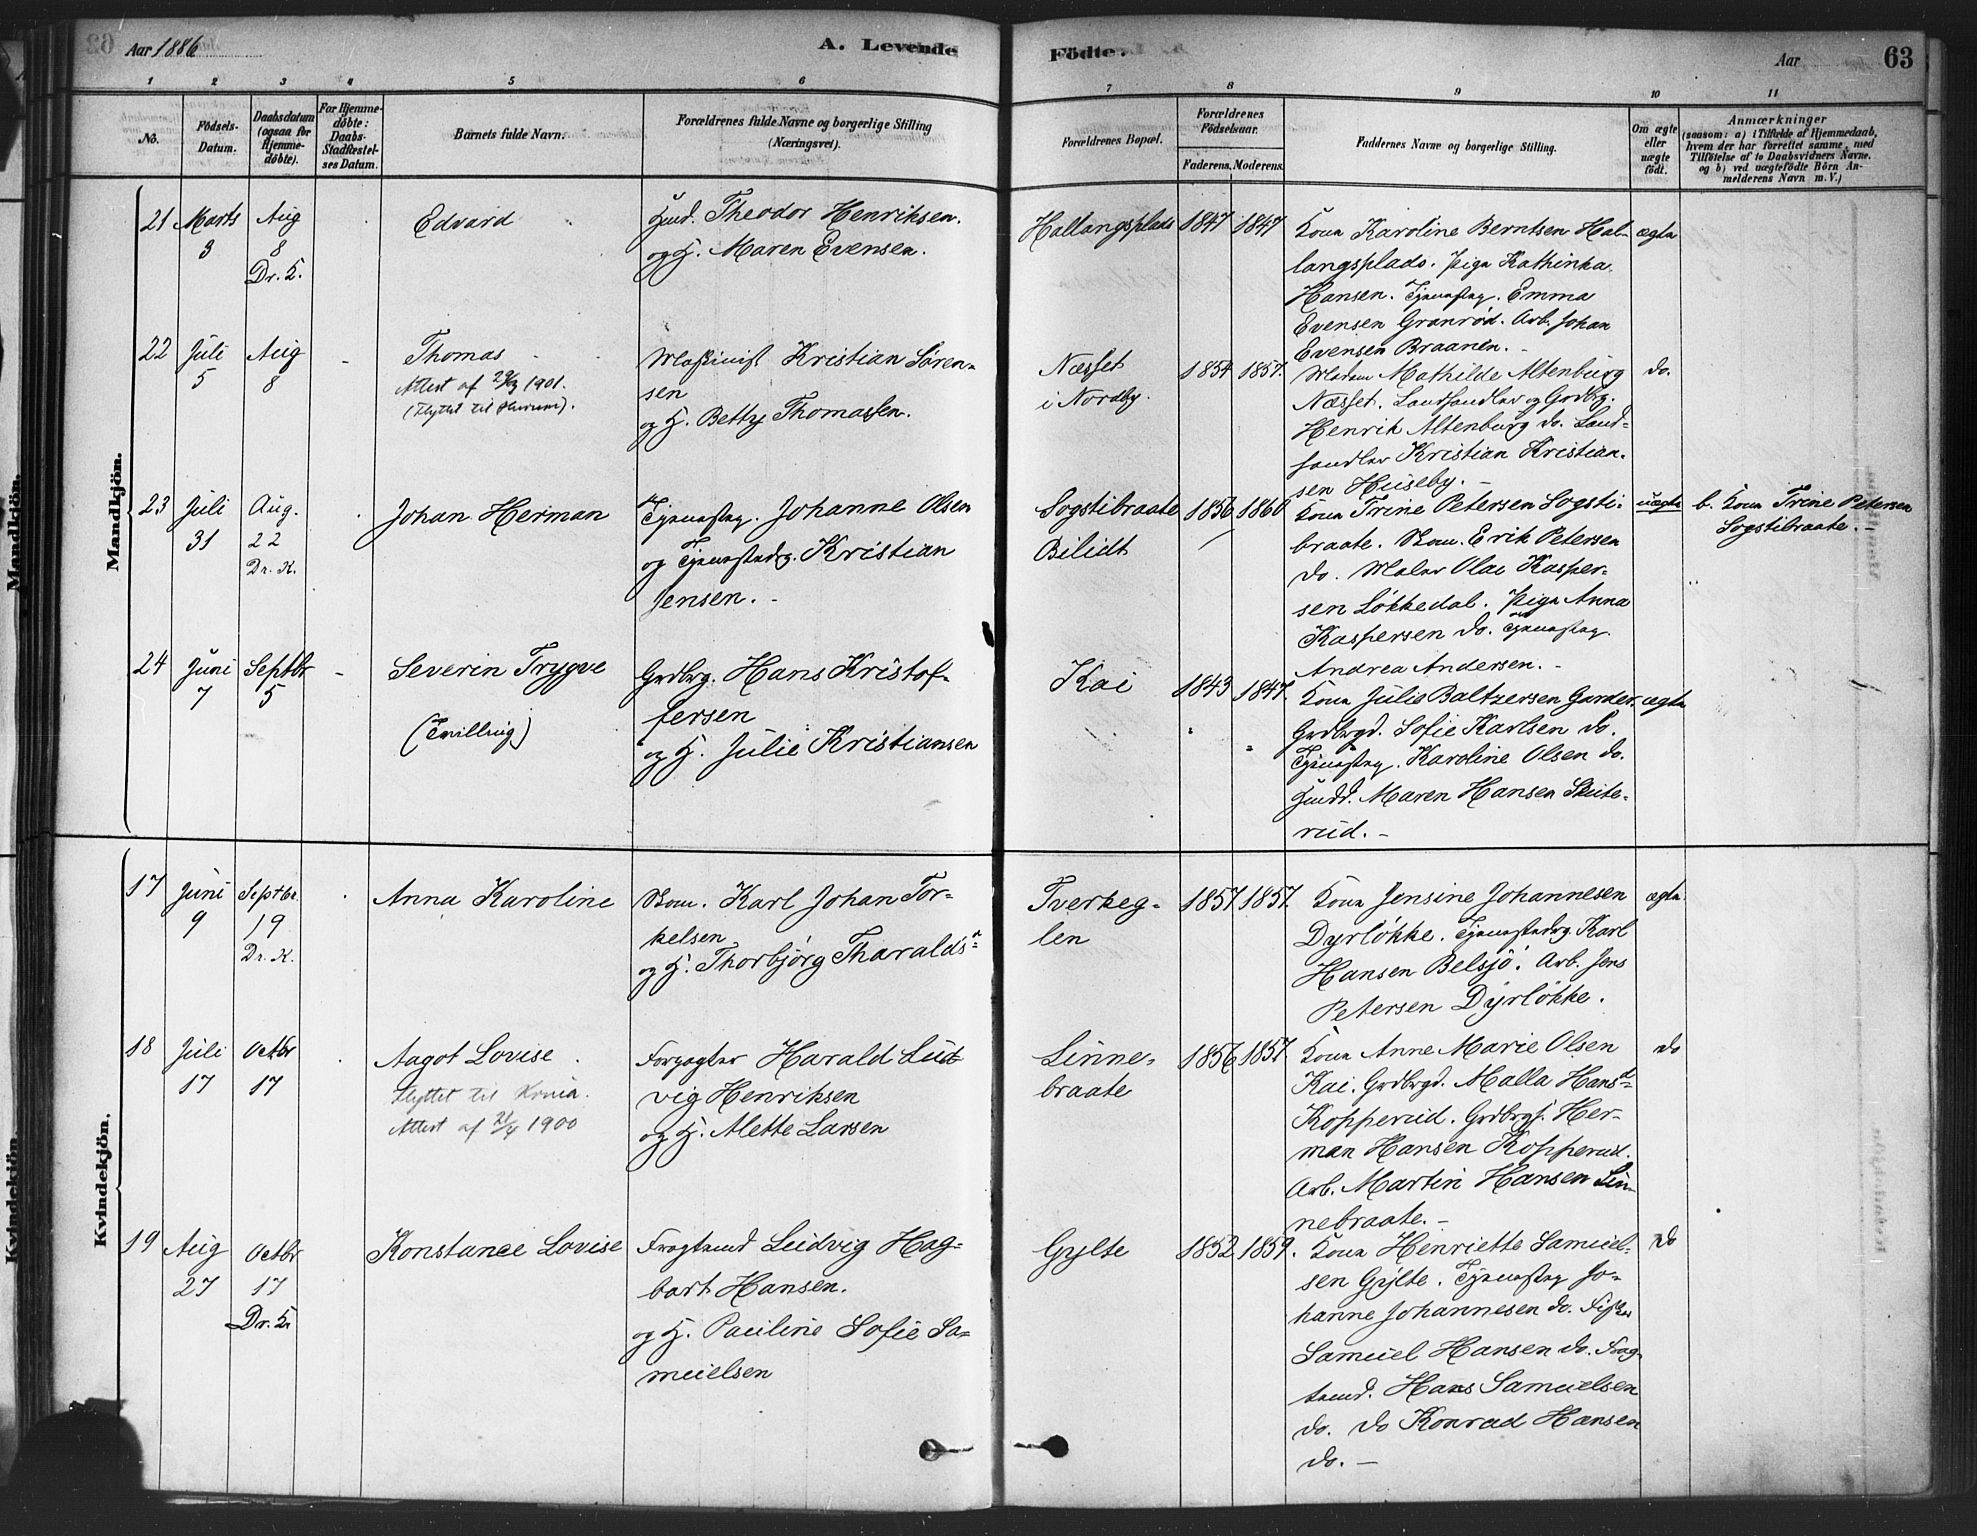 Aar 1886
A. Levende
Födte.
Aar
63
1 2 3 4 5 6 7 8 9 10 11
No.
Födsels-
Datum.
Daabsdatum
(ogsaa for
Hjemme-
döbte).
For Hjemme-
döbte:
Daabs-
Stadfæstel-
ses Datum.
Barnets fulde Navn.
Forældrenes fulde Navne og borgerlige Stilling
(Næringsvei).
Forældrenes Bopæl.
Forældrenes
Födselsaar.
Faderens. Moderens.
Faddernes Navne og borgerlige Stilling.
Om ægte
eller
uægte
födt.
Anmærkninger
(saasom: a) i Tilfælde af Hjemmedaab,
hvem der har forrettet samme, med
Tilföielse af to Daabsvidners Navne.
og b) ved uægtefödte Börn An-
melderens Navn m. V.)
Mandkjön.
21
Marts
3
Aug
8
Dr. K.
Edvard
Husd. Theodor Henriksen.
og H. Maren Evensen.
Hallangsplads
1847 1847
Kona Karoline Berntsen Hal-
langsplads. Piga Kathinka
Hansen. Tjenestpg. Emma
Evensen Granrød. Arb. Johan
Evensen Braanen.
ægte
22
Juli
5
Aug
8
Thomas
Attest af 1901.
(Flyttet til Hurum).
Maskinist Kristian Søren-
sen
og H. Betty Thomassen.
Næsset
i Nordby.
1854 1857.
Madam Mathilde Altenburg
Næsset. Landhandler og Grdbrg.
Henrik Altenburg do. Land-
handler Kristian Kristian-
sen Huseby.
do.
23
Juli
31
Aug.
22
Dr. K.
Johan Herman
Tjenestpg. Johanne Olsen
og Tjenestedrg. Kristian
Jensen.
Sogstibraate
Bilidt
1856 1860
Kona Trine Petersen Sogsti-
braate. Bom. Erik Petersen
do. Maler Olai Kasper-
sen Løkkedal. Piga Anna
Kaspersen do. Tjenestpg.
Andrea Andersen.
uægte
b. Kona Trine Petersen
Sogstibraate.
24
Juni
7
Septbr
5
Severin Trygve
(Tvilling)
Grdbrg. Hans Kristof-
fersen
og H. Julie Kristiansen
Kai
1843 1847.
Kona Julie Baltzersen Garder.
Grdbrgd. Sofie Karlsen do.
Tjenestpg. Karoline Olsen do.
Husdd. Maren Hansen Skute-
rud.
ægte
Kvindekjön.
17
Juni
9
Septbr.
19
Dr. K.
Anna Karoline
Bom. Karl Johan Tor-
kelsen
og H. Thorbjørg Tharaldsd
Tverkeg-
len
1857 1857.
Kona Jensine Johannesen
Dyrløkke. Tjenestedrg. Karl
Hansen Belsjø. Arb. Jens
Petersen Dyrløkke.
ægte.
18
Juli
17
Octbr
17
Aagot Lovise
Flyttet til Krnia.
Attest af 21/4 1900
Forpagter Harald Lud-
vig Henriksen
og H. Alette Larsen
Linne-
braate
1856 1857.
Kona Anne Marie Olsen
Kai. Grdbrgd. Malla Hansd
Kopperud. Grdbrgs. Her-
man Hansen Kopperud.
Arb. Martin Hansen Lin-
nebraate.
do
19
Aug
27
Octbr
17
Dr. K.
Konstance Lovise
Fragtmd Ludvig Hag-
bart Hansen.
og H. Pauline Sofie Sa-
muelsen
Gylte
1852 1859.
Kona Henriette Samuel-
sen Gylte. Tjenestpg Jo-
hanne Johannesen do. Fisker
Samuel Hansen do. Frag-
tmd. Hans Samuelsen
do. do Konrad Hansen
do.
do